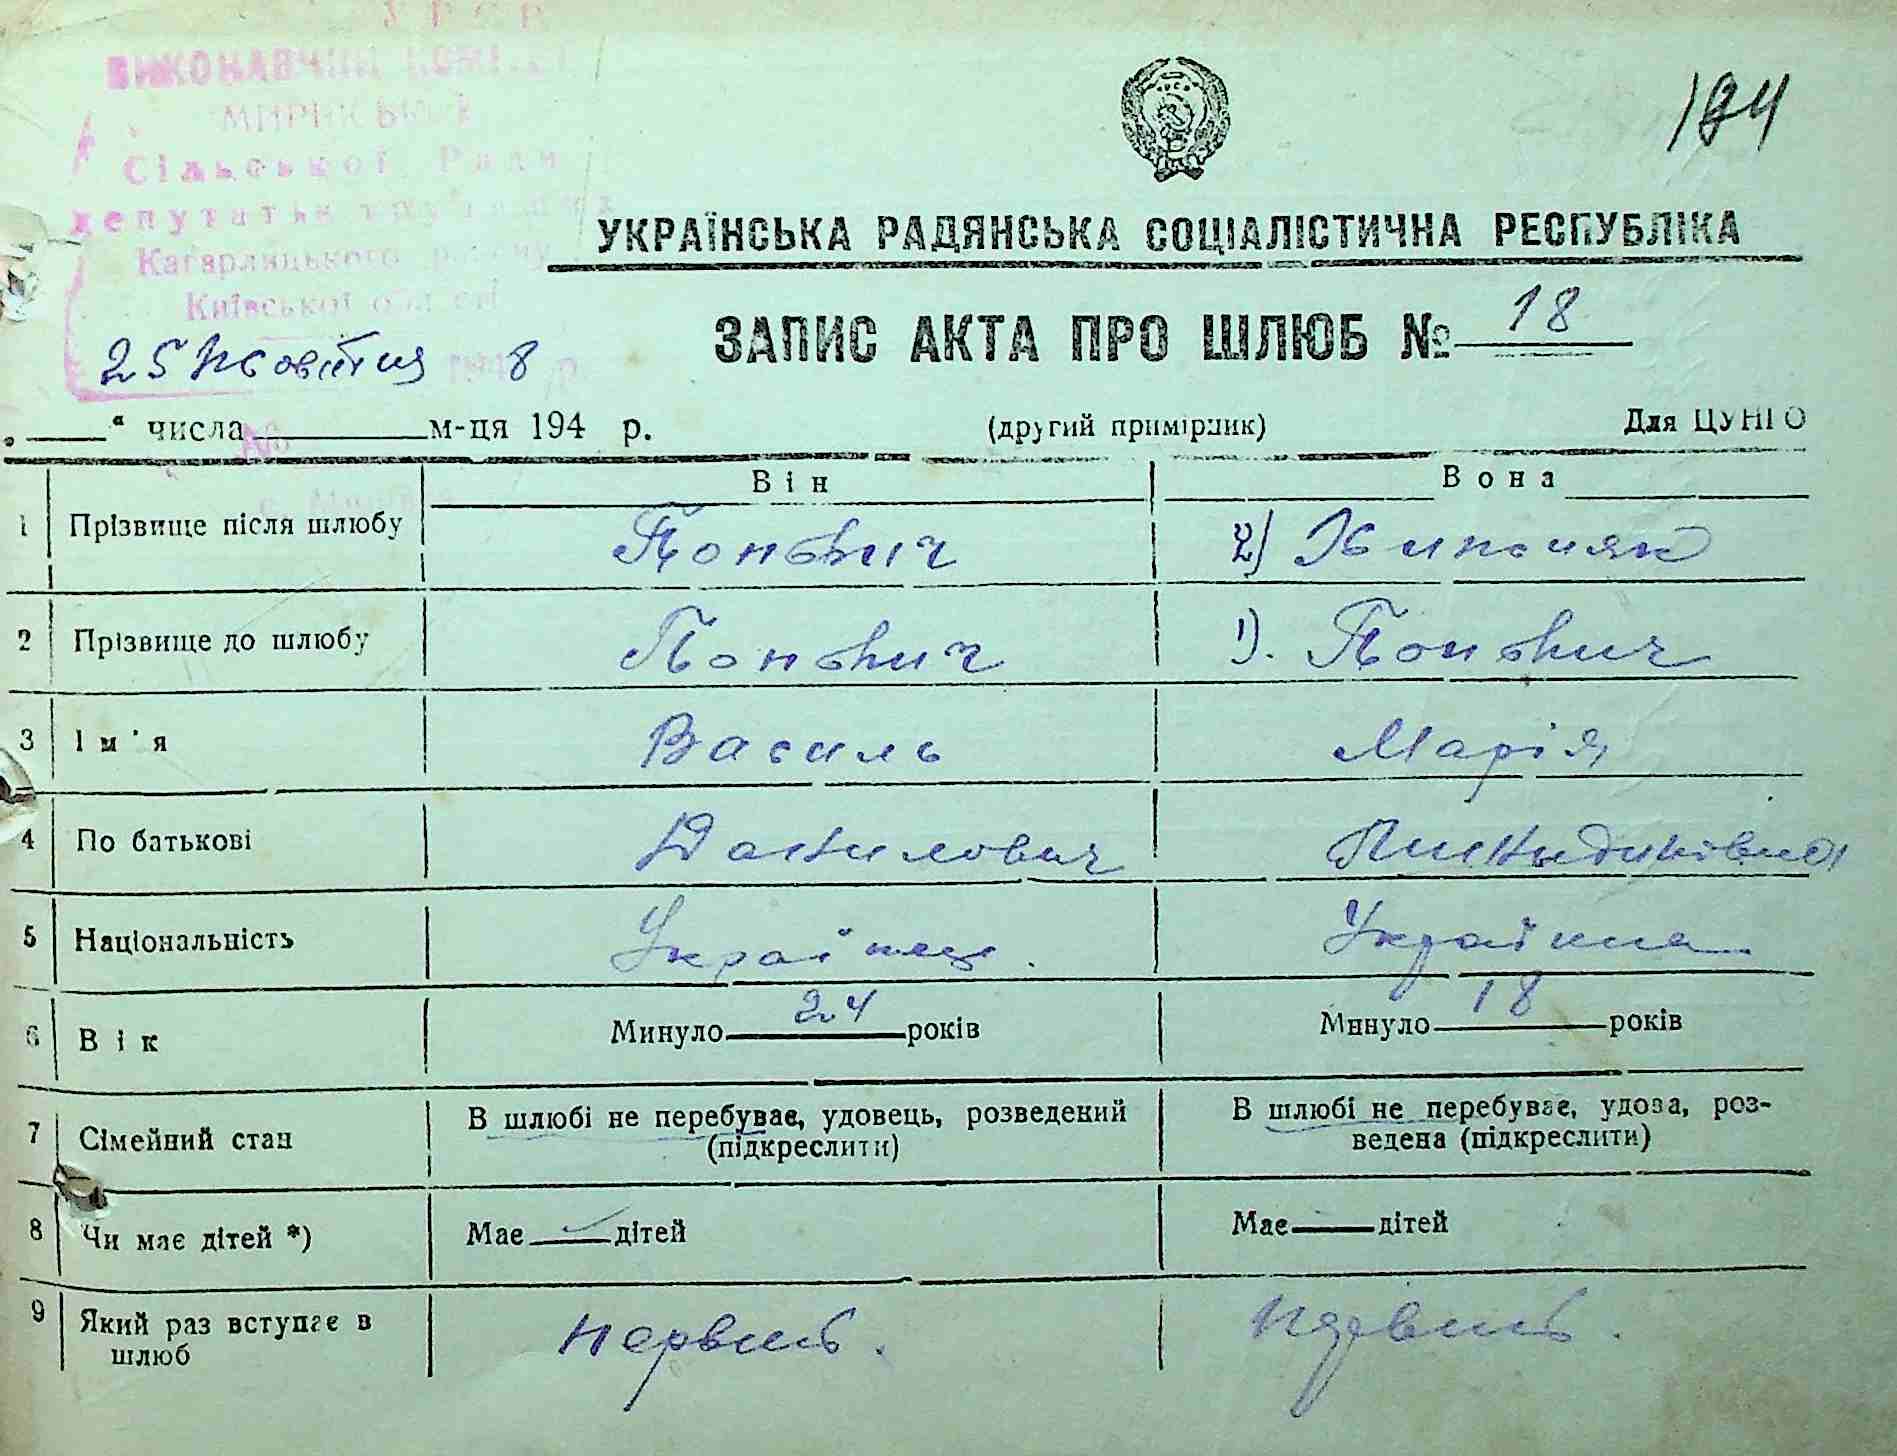 УРСР
ВИКОНАВЧИЙ КОМІТЕТ
МИРІВСЬКОЇ
Сільської Ради
депутатів трудящих
Кагарлицького району
Київської області
25 Жовтня 1948 р.
184
УКРАЇНСЬКА РАДЯНСЬКА СОЦІАЛІСТИЧНА РЕСПУБЛІКА
ЗАПИС АКТА ПРО ШЛЮБ № 18
„ “ числа м-ця 194 р. (другий примірник) Для ЦУНГО
Він Вона
1 Прізвище після шлюбу Попович 2)
2 Прізвище до шлюбу Попович 1). Попович
3 Ім'я Василь Марія
4 По батькові Данилович
5 Національність Українець. Українка
6 Вік Минуло 24 років Минуло 18 років
7 Сімейний стан В шлюбі не перебуває, удовець, розведений (підкреслити) В шлюбі не перебуває, удова, роз-
ведена (підкреслити)
8 Чи має дітей *) Має — дітей Має — дітей
9 Який раз вступає в шлюб первий. первий.